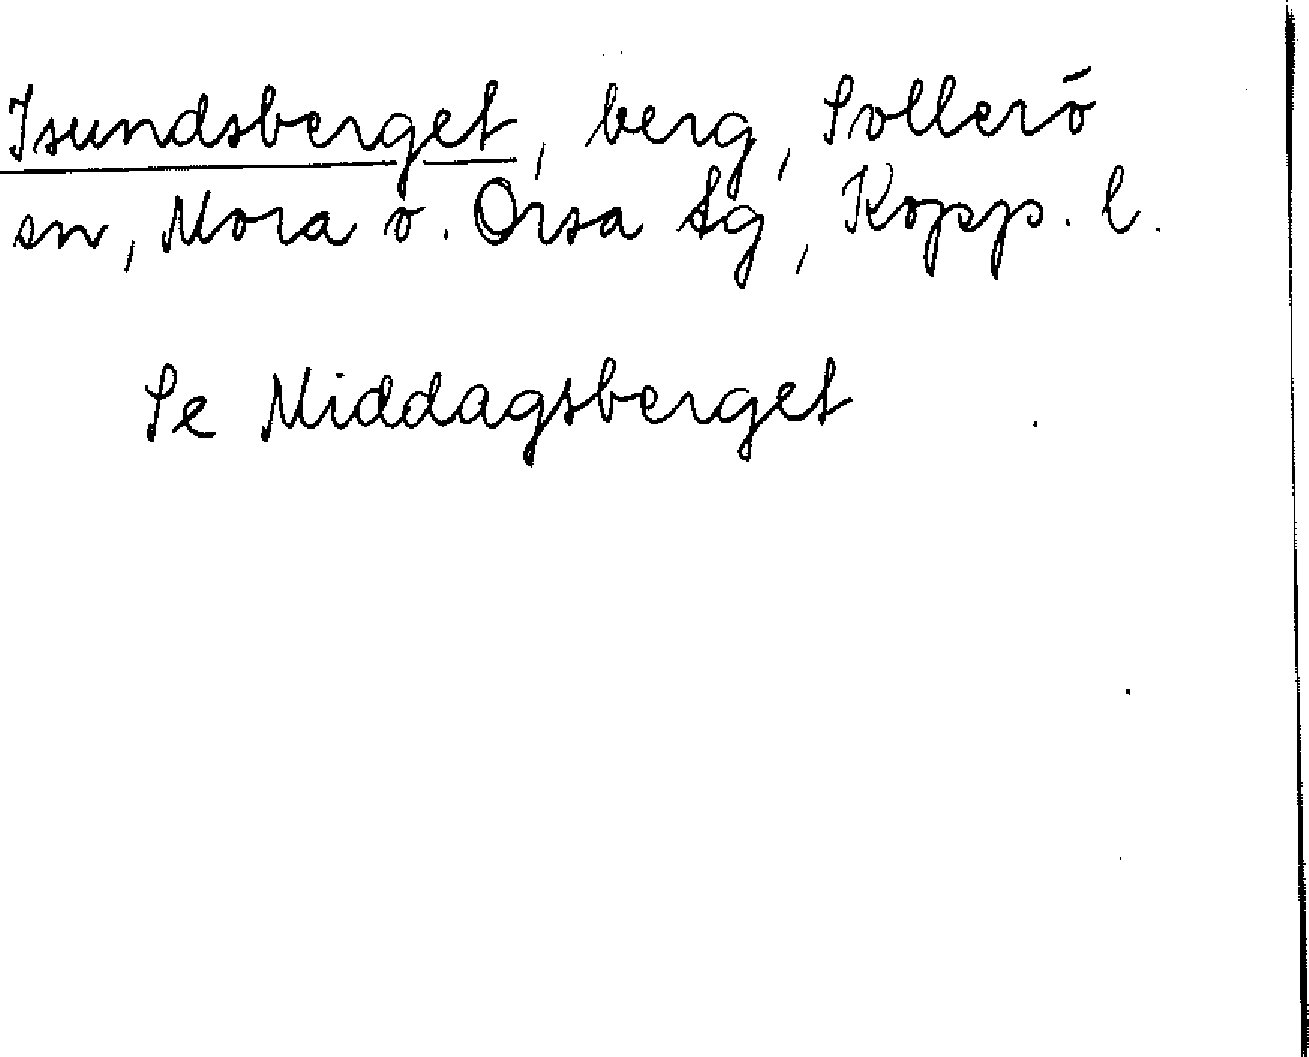 Isundsberget, berg, Sollerö
sn, Mora o. Orsa tg, Kopp. l.
Se Middagsberget